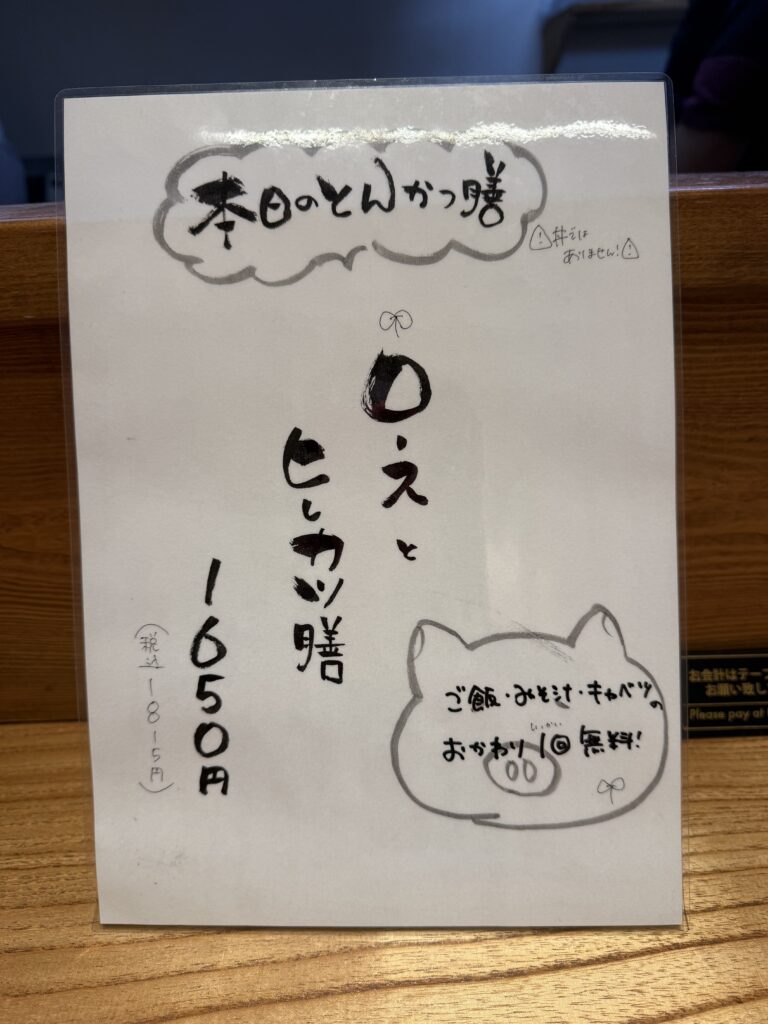 本日のとんかつ膳
丼では
ありません!
ロースと
ヒレカツ膳
1650円
(税込1815円)
ご飯・みそ汁・キャベツの
いっかい
おかわり1回無料!
お会計はテーブ
お願い致し
Please pay at